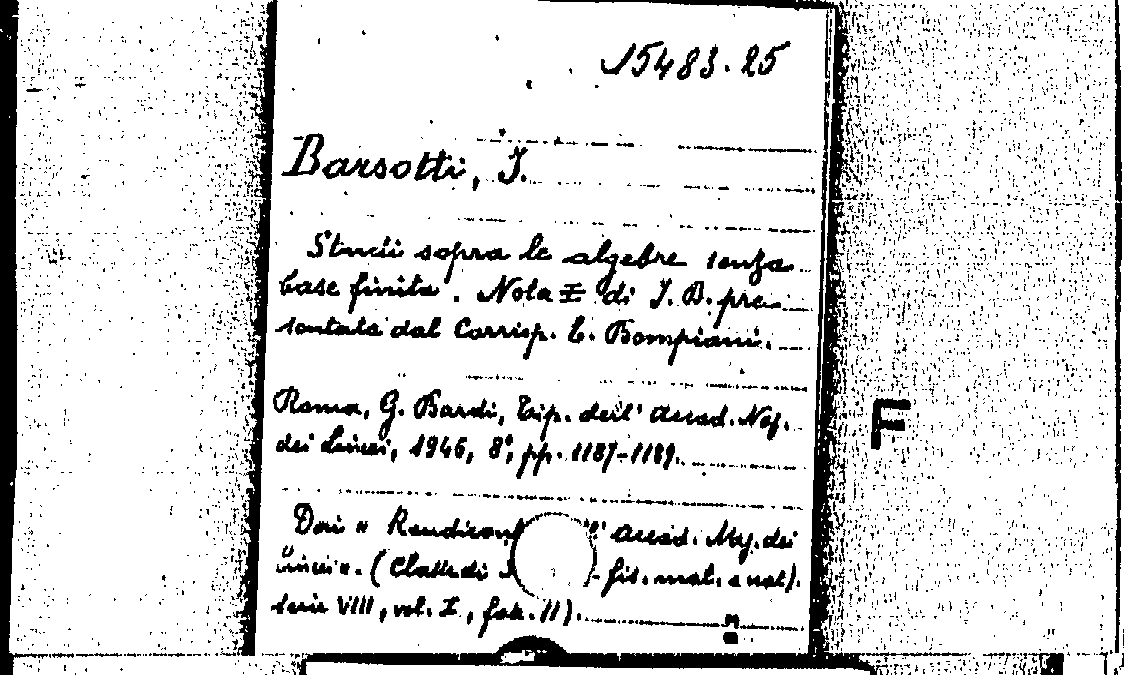 15483.25
Barsotti, I.
Studi sopra le algebre senza
base finita. Nota I di I. B. pre-
sentata dal Corrisp. E. Bompiani.
Roma, G. Bardi, Tip. dell' Accad. Naz.
dei Lincei, 1946, 8°, pp. 1187-1189.
F
Dai « Rendicont ll' Accad. Naz. dei
Lincei ». (Classe di - fis. mat. e nat).
serie VIII, vol. I, fasc. 11).
M